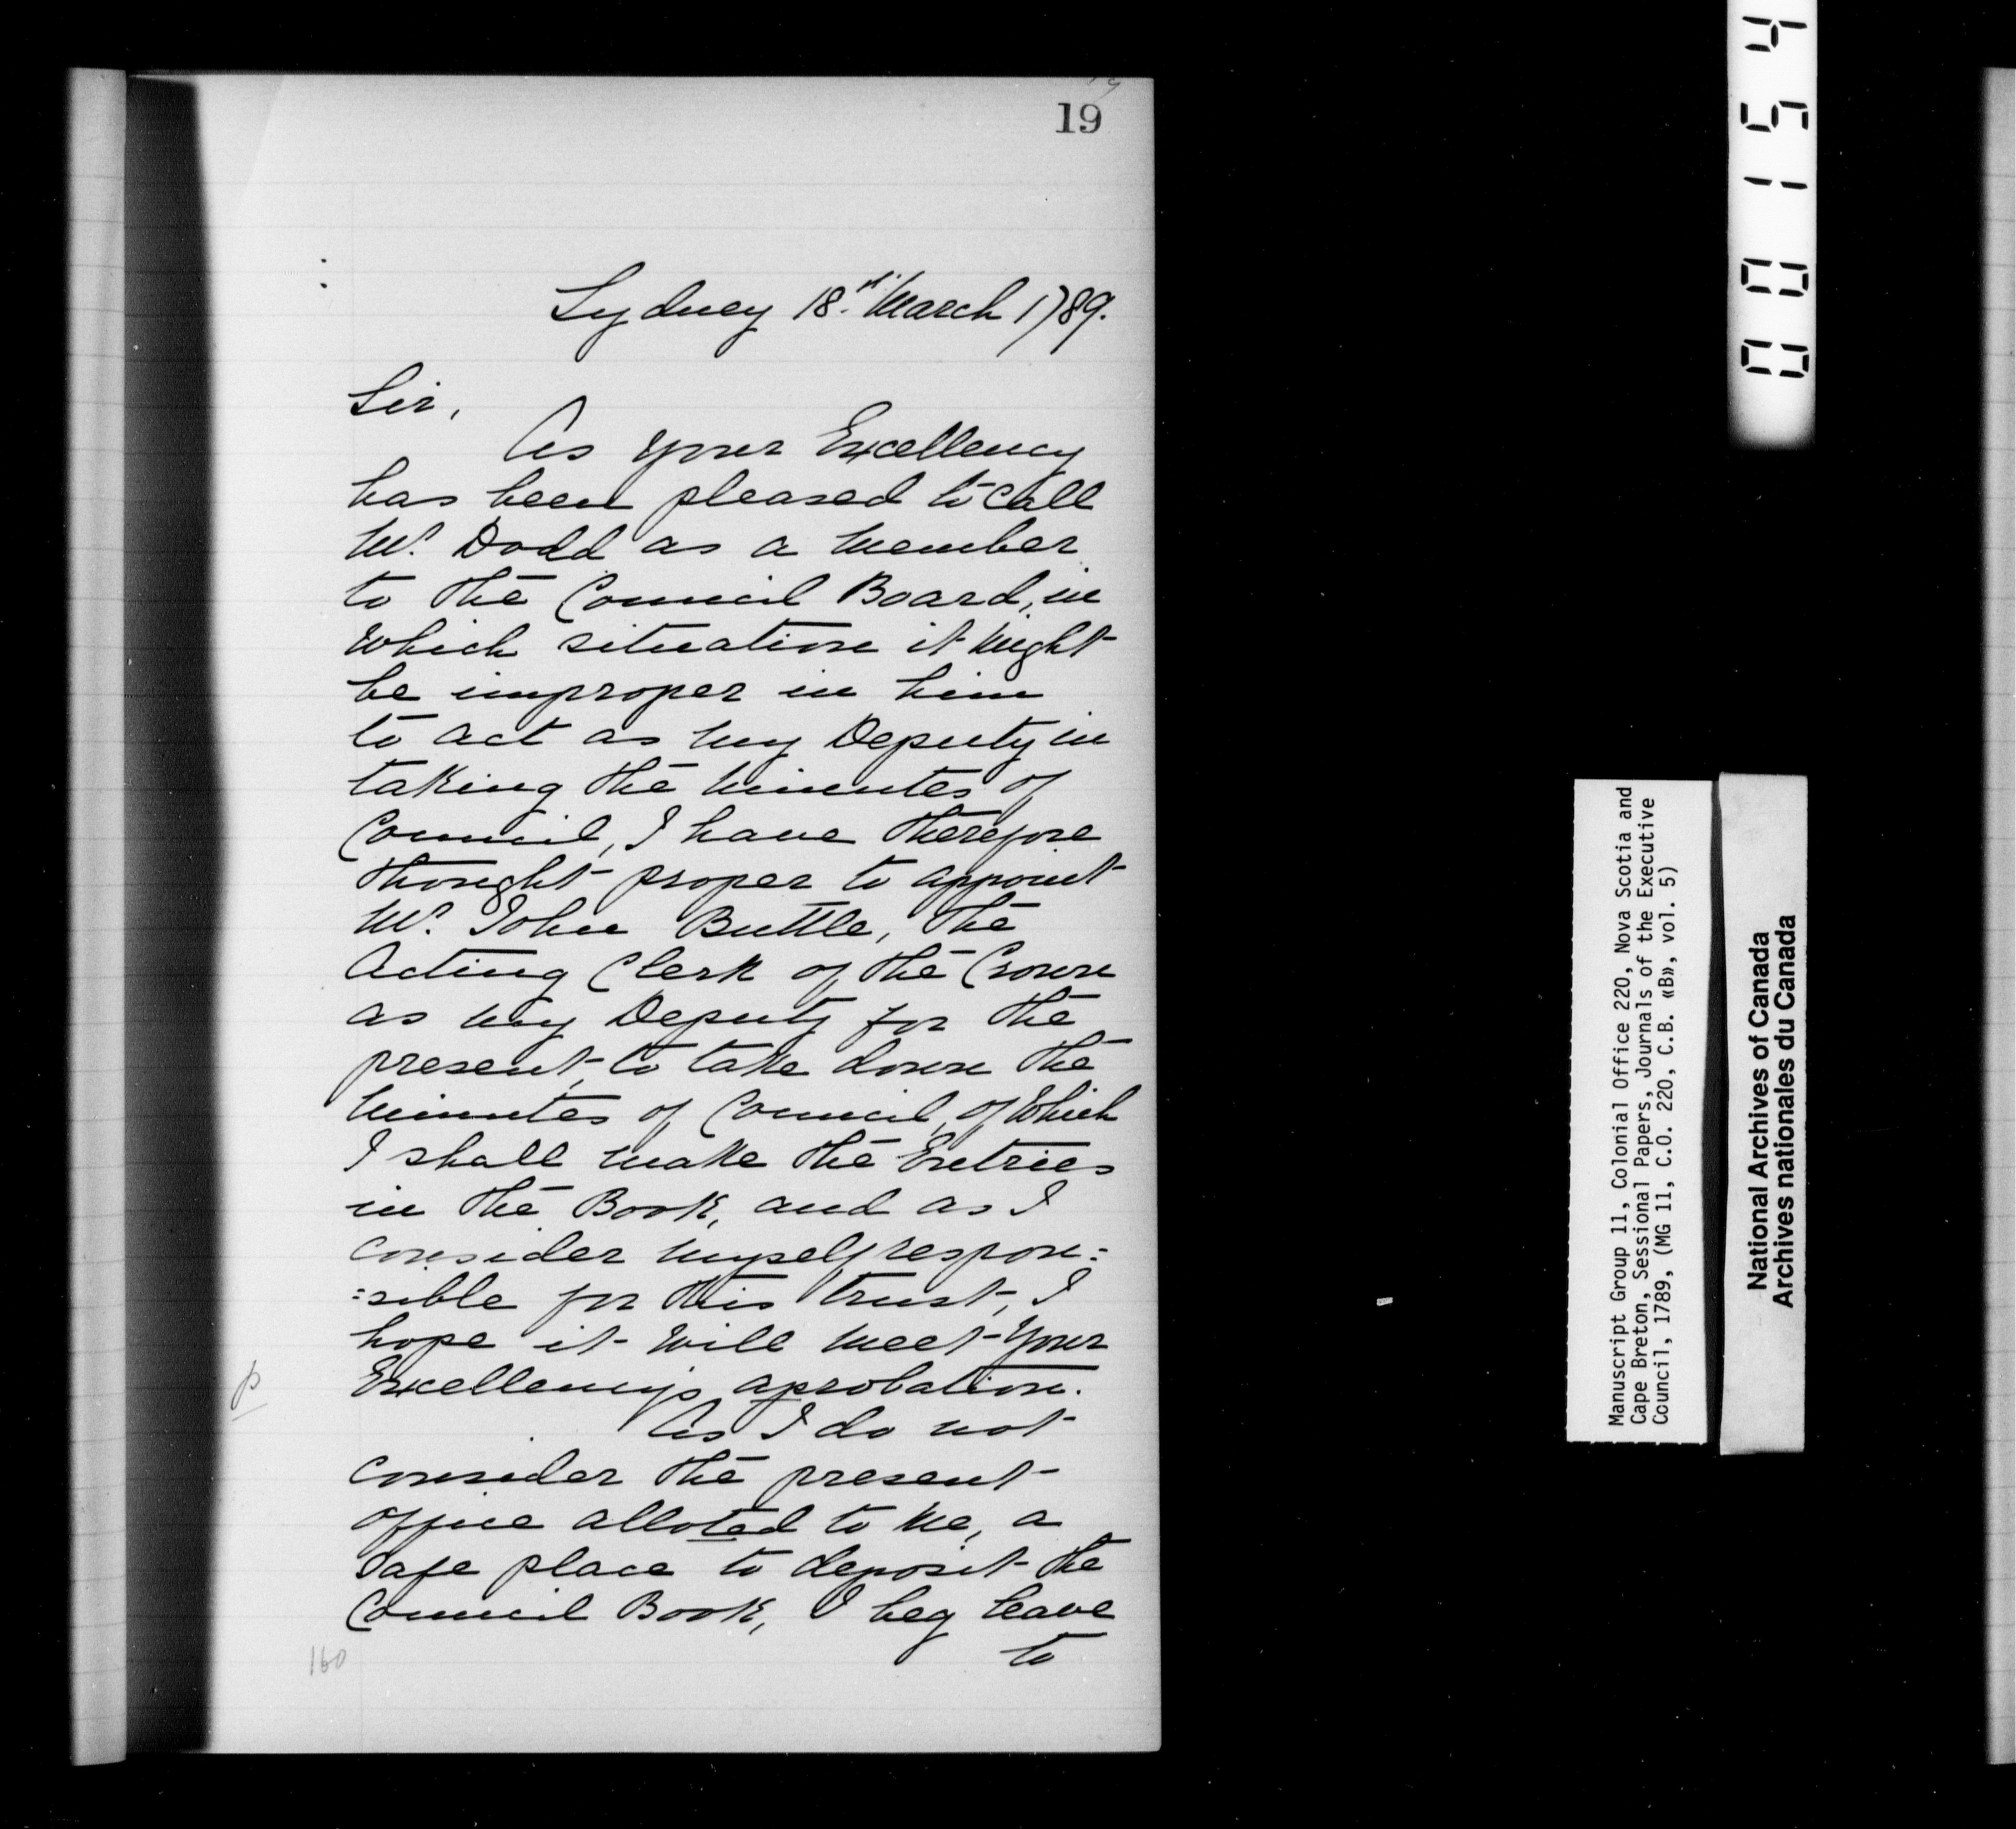 19
Sydney 18.th March 1789.
Sir,
As Your Excellency
has been pleased to call
Mr. Dodd as a Member
to the Council Board, in
Which situation it Might
be improper in him
to act as my Deputy in
taking the Minutes of
Council, I have therefore
thought proper to appoint
Mr. John Buttle, the
Acting Clerk of the Crown
as my Deputy for the
present, to take down the
Minutes of Council, of Which
I shall make the Entries
in the Book, and as I
consider myself respon:
:sible for this trust, I
hope it Will meet Your
Excellency's aprobation.
As I do not
consider the present
office alloted to Me, a
Safe place to deposit the
Council Book, I beg leave
to
160
00154
Manuscript Group 11, Colonial Office 220, Nova Scotia and
Cape Breton, Sessional Papers, Journals of the Executive
Council, 1789, (MG 11, C.O. 220, C.B. «B», vol. 5)
National Archives of Canada
Archives nationales du Canada